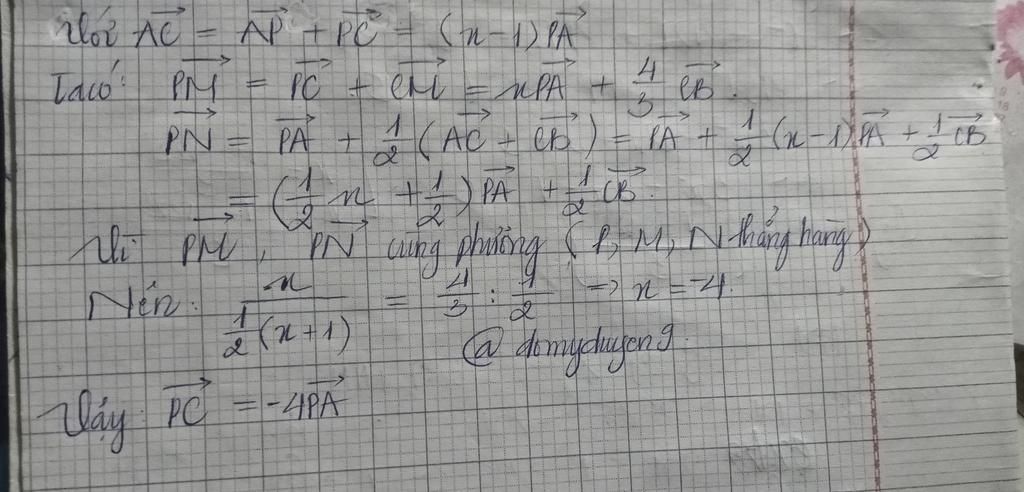 Với \overrightarrow{AC} = \overrightarrow{AP} + \overrightarrow{PC} = (x-1)\overrightarrow{PA}
Ta có: \overrightarrow{PM} = \overrightarrow{PC} + \overrightarrow{CM} = x\overrightarrow{PA} + \frac{4}{3}\overrightarrow{CB}.
\overrightarrow{PN} = \overrightarrow{PA} + \frac{1}{2}(\overrightarrow{AC} + \overrightarrow{CB}) = \overrightarrow{PA} + \frac{1}{2}(x-1)\overrightarrow{PA} + \frac{1}{2}\overrightarrow{CB}
= (\frac{1}{2}x + \frac{1}{2})\overrightarrow{PA} + \frac{1}{2}\overrightarrow{CB}.
Vì \overrightarrow{PM}, \overrightarrow{PN} cùng phương (P, M, N thẳng hàng)
Nên: \frac{x}{\frac{1}{2}(x+1)} = \frac{4}{3} : \frac{1}{2} => x = -4.
@domyduyen9
Vậy: \overrightarrow{PC} = -4\overrightarrow{PA}